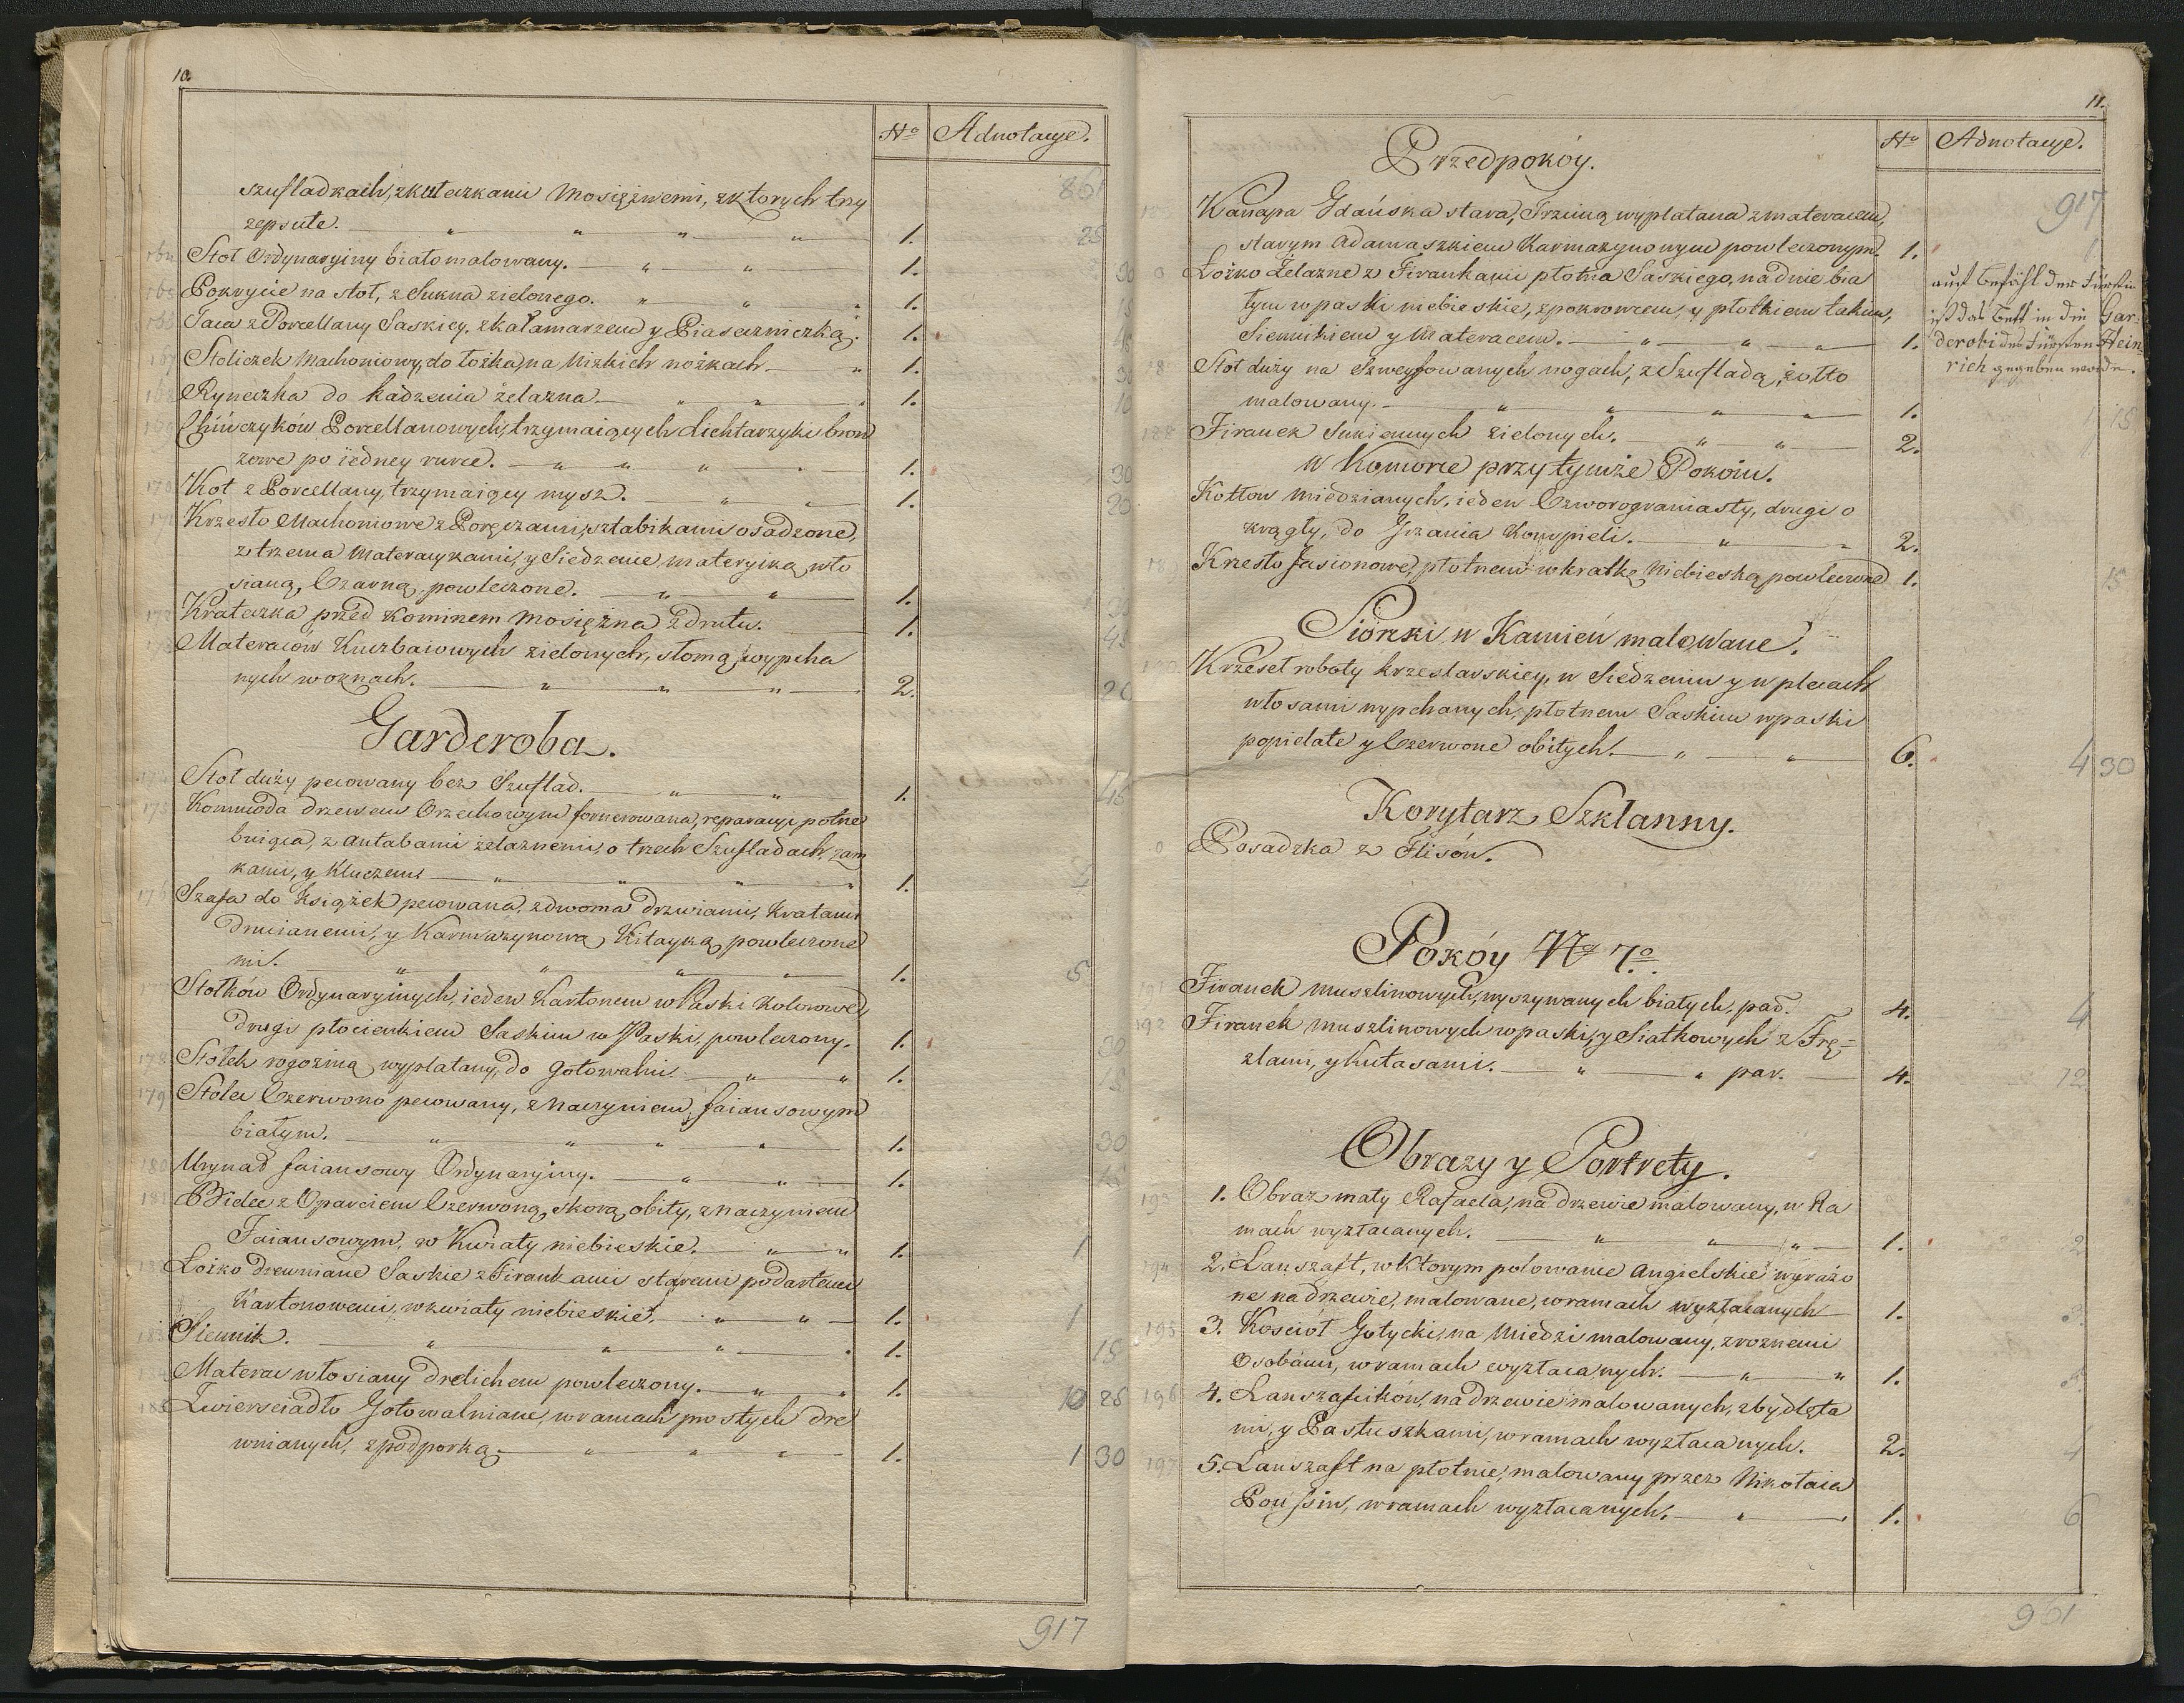 10.
No Adnotacye.
szufladkach, z kutazkami Mosiężnemi, z ktorych trzy 861
zepsute. 1. 25
164 Stoł Ordynaryiny biało malowany. 1. 30
165 Pokrycie na stoł, z Sukna zielonego. 1. 15
166 Taca z Porcellany Saskiey, z kałamarzem y Piaseczniczką. 1.
167 Stoliczek Machoniowy, do łożka, na Nizkich nożkach 1. 30
168 Ryneczka do kadzenia żelazna. 1. 10
169 Chińczyków Porcellanowych, trzymaiących lichtarzyki bron
zowe po iedney rurce. 1. 30
170 Kot z Porcellany, trzymaiący mysz. 1. 20
171 Krzesło Machoniowe z Poręczami, sztabikami osadzone,
z trzema Materacykami, y Siedzenie materyiką wło
sianą, Czarną, powleczone. 1.
172 Krateczka przed Kominem Mosiężna z drutu. 1. 45
173 Materaców Kuczbaiowych zielonych, słomą, wypcha
nych w oknach. 2. 20
Garderoba.
174 Stoł duży pecowany bez Szuflad. 1. 45
175 Kommoda drzewem Orzechowym fornerowana, reparacyi potrze
buiąca, z antabami żelaznemi, o trzech Szufladach, zam
kami, y Kluczem 1. 4
176 Szafa do Książek pecowana, z dwoma drzwiami, Kratami
Drucianemi, y Karmazynową Kitayką, powleczone
mi. 1. 5
Stołków Ordynaryinych, ieden Kartonem w Paski Kolorowe,
drugi płocienkiem Saskim w Paski, powleczony. 1. 30
178 Stołek rogożiną wyplatany, do gotowalni. 1. 15
179 Stolec Czerwono pecowany, z Naczyniem faiansowym
białym. 1. 30
180 Urynał faiansowy Ordynaryiny. 1. 15
181 Bidet z Oparciem Czerwoną, skorą, obity, z Naczyniem
Faiansowym, w Kwiaty niebieskie. 1. 1
182 Łożko drewniane Saskie z Firankami staremi podartemi
Kartonowemi, w kwiaty niebieskie. 1. 1
183 Siennik. 1. 15
184 Materac włosiany Drelichem powleczony. 1. 10 25
185 Zwierciadło Gotowalniane, w ramach prostych dre
wnianych, z podporką. 1. 1 30
917
11.
No Adnotacye.
Przedpokóy.
917
186 Kanapa Gdańska stara, Trzciną wyplatana z materacem,
starym Adamaszkiem Karmazynowym powleczonym. 1. 1
0 Łożko Żelazne z Firankami płotna Saskiego, na dnie bia
łym w paski niebieskie, z pokrowcem, y płotkiem takim,
Siennikiem y Materacem. 1.
auf Befehl der Fürstin
ist das Bett in die Gar-
derobe des Fürsten Hein-
rich gegeben worde.
Stoł duży na Szweyfowanych nogach, z Szufladą, żołto
malowany. 1. 15
188 Firanek Sukiennych zielonych. 2. 1
W Komorce przy tymże Pokoiu.
Kotłow Miedzianych, ieden Czworograniasty, drugi o
krągły, do Grzania Kompieli. 2.
189 Krzesło fasionowe, płotnem w kratkę Niebieską powleczone 1. 15
Piórxi w Kamień malowane.
190 Krzeseł roboty krzeslarskiey, w Siedzeniu y w plecach
włosami wypchanych, płotnem Saskim w paski
popielate y Czerwone obitych. 6. 4 30
Korytarz Szklanny.
0 Posadzka z Flisów.
Pokóy No 7o.
191 Firanek Muszlinowych, wyszywanych białych, par. 4. 4
192 Firanek muszlinowych w paski, y Siatkowych z Frę-
zlami, y Kutasami. par. 4. 12
Obrazy y Portrety.
193 1. Obraz mały Rafaela, na drzewie malowany, w Ra
mach wyzłacanych. 1. 2
194 2. Lanszaft, w Ktorym polowanie Angielskie wyrażo
ne na drzewie, malowane, w ramach wyzłacanych 1. 3
195 3. Kosciół Gotycki, na Miedzi malowany, z rożnemi
Osobami, w ramach wyzłacanych. 1.
196 4. Lanszafcików, na drzewie malowanych, z bydlęta
mi, y Pastuszkami, w ramach wyzłacanych. 2. 4
197 5. Lanszaft na płotnie, malowany przez Nikołaia
Poussin, w ramach wyzłacanych. 1. 6
961